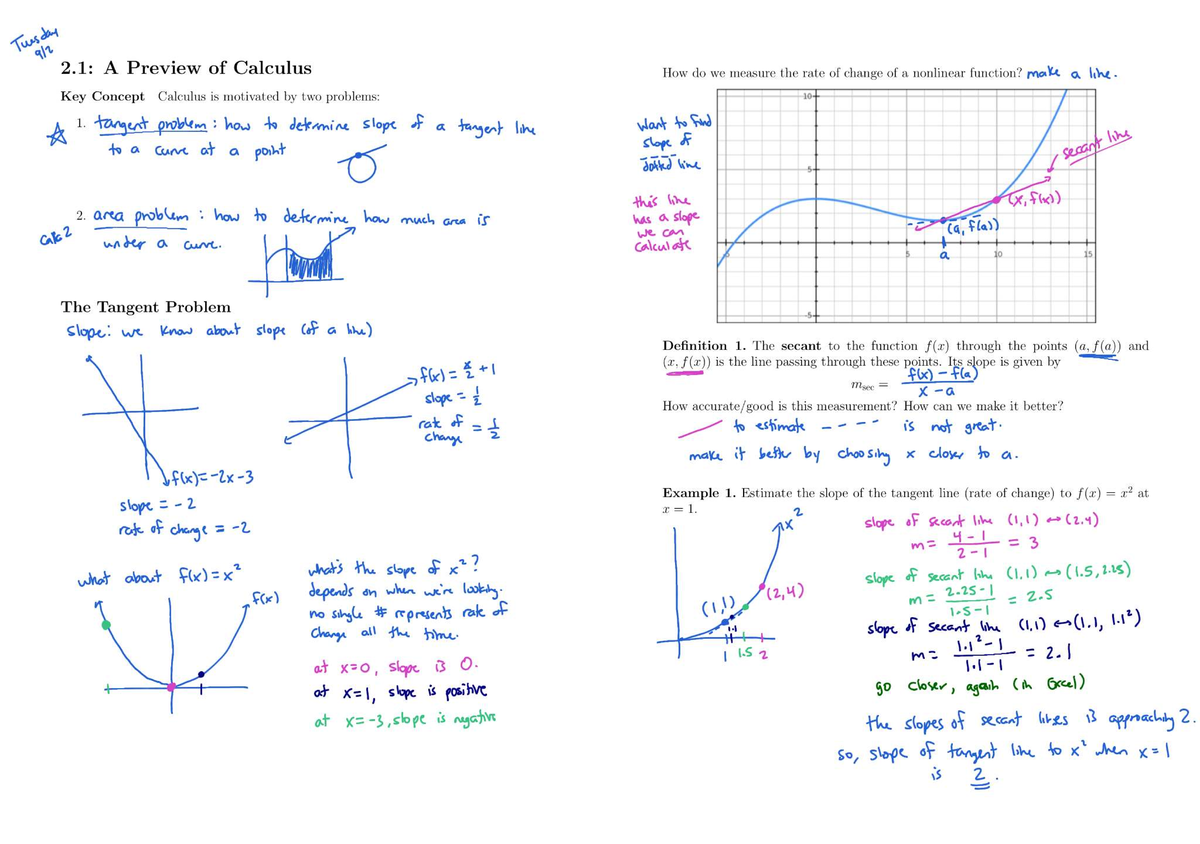 Tuesday
9/2
2.1: A Preview of Calculus
Key Concept Calculus is motivated by two problems:
1. tangent problem : how to determine slope of a tangent line
to a curve at a point
2. area problem : how to determine how much area is
under a curve.
calc 2
The Tangent Problem
slope: we know about slope (of a line)
f(x) = x/2 + 1
slope = 1/2
rate of change = 1/2
f(x) = -2x - 3
slope = -2
rate of change = -2
what about f(x) = x²
f(x)
what's the slope of x² ?
depends on when we're looking.
no single # represents rate of
change all the time.
at x=0, slope is 0.
at x=1, slope is positive
at x=-3, slope is negative
How do we measure the rate of change of a nonlinear function? make a line.
want to find
slope of
dotted line
this line
has a slope
we can
calculate
10
5
-5
5
10
15
secant line
(x, f(x))
(a, f(a))
a
Definition 1. The secant to the function f(x) through the points (a, f(a)) and
(x, f(x)) is the line passing through these points. Its slope is given by
m_sec = (f(x) - f(a)) / (x - a)
How accurate/good is this measurement? How can we make it better?
to estimate ---- is not great.
make it better by choosing x closer to a.
Example 1. Estimate the slope of the tangent line (rate of change) to f(x) = x² at
x = 1.
x²
(2,4)
(1,1)
1.1
1 1.5 2
slope of secant line (1,1) ↔ (2,4)
m = (4-1)/(2-1) = 3
slope of secant line (1,1) ↔ (1.5, 2.25)
m = (2.25-1)/(1.5-1) = 2.5
slope of secant line (1,1) ↔ (1.1, 1.1²)
m = (1.1²-1)/(1.1-1) = 2.1
go closer, again (in Excel)
the slopes of secant lines is approaching 2.
so, slope of tangent line to x² when x=1
is 2.